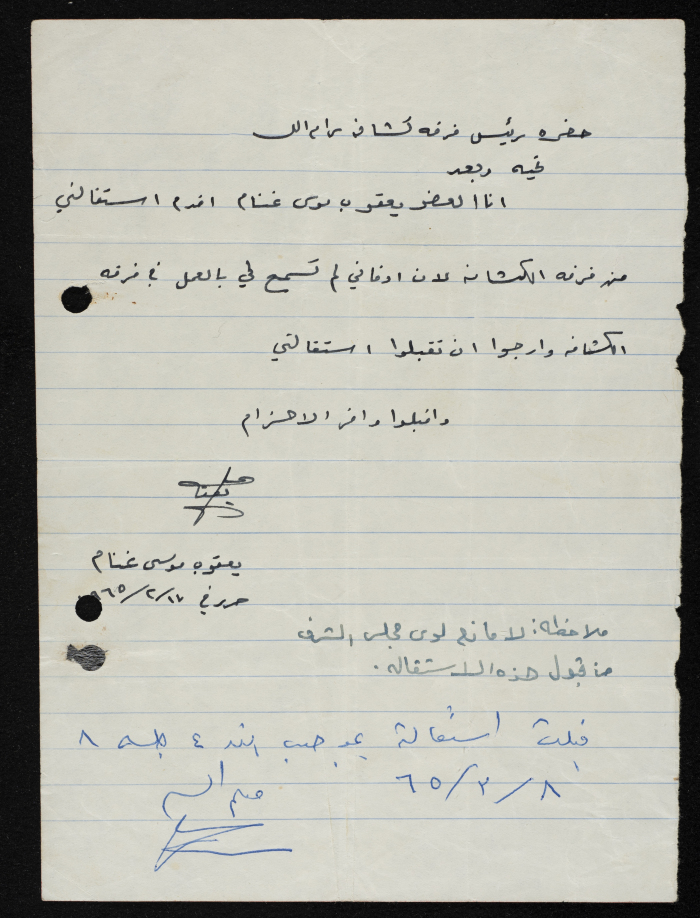 حضره رئيس فرقه كشافه رام الله
تحيه وبعد
انا العضو يعقوب موسى غنام اقدم استقالتي
من فرقه الكشافه لان اوقاتي لم تسمح لي بالعمل في فرقه
الكشافه وارجوا ان تقبلوا استقالتي
واقبلوا وافر الاحترام
يعقوب موسى غنام
حرر في ١٧/٢/٩٦٥
ملاحظه: لا مانع لدى مجلس الشرف
من قبول هذه الاستقاله.
قبلت استقالة بموجب البند ٤ جلسه ٨
٨/٣/٦٥